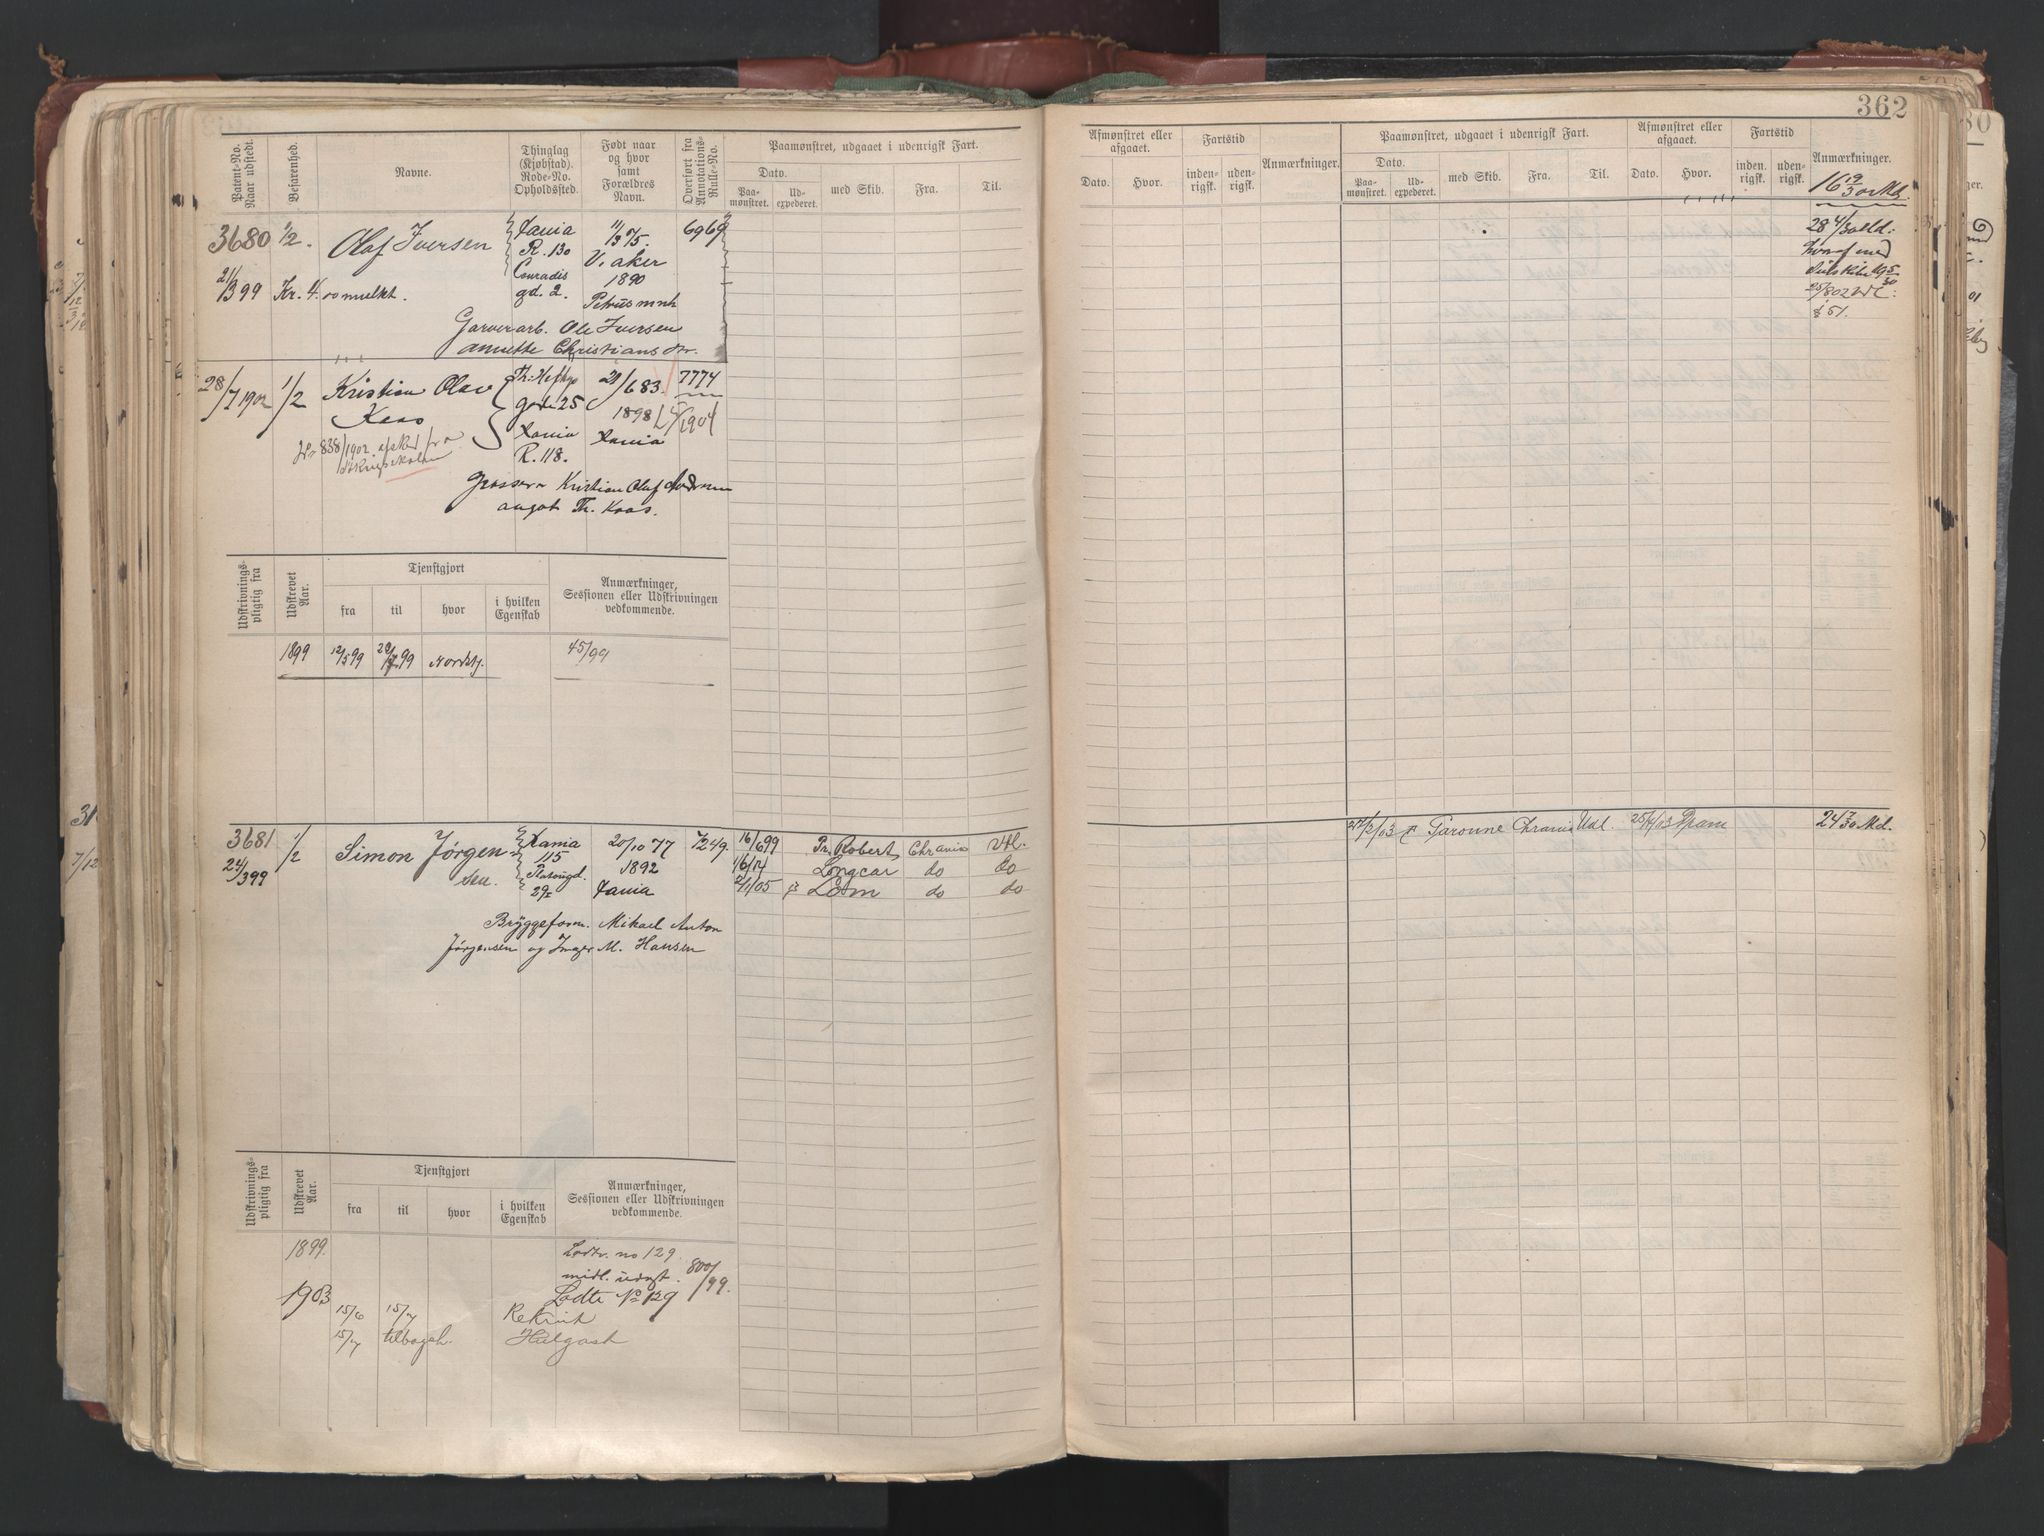 362
Patent-No. Naar udstedt.
Befarenhed.
Navne.
Thinglag (Kjøbstad). Rode-No. Opholdssted.
Født naar og hvor samt Forældres Navn.
Overført fra Annotations-Rulle-No.
Paamønstret, udgaaet i udenrigsk Fart.
Dato.
Paamønstret.
Udexpederet.
med Skib.
Fra.
Til.
3680 1/2. Olaf Iversen
Xania
R. 130
Conradis
gd. 2.
11/3 75.
V. aker
1890
Petrus mnh
6969
21/3 99 Kr. 4.00 mulkt.
Garverarb. Ole Iversen
Annette Christiansdtr.
28/7 1902 1/2 Kristian Olav
Kaas
Th. Heftyes
gade 25
Xania
R. 118.
29/6 83.
1898
Xania
7774
1904
838/1902
Grosserer Kristian Olaf
August Th. Kaas.
Udskrivningspligtig fra
Udskrevet Aar.
Tjenstgjort
fra
til
hvor
i hvilken Egenskab
Anmærkninger, Sessionen eller Udskrivningen vedkommende.
1899 12/5 99 99 Nordstj. 45/99
3681 1/2 Simon Jørgensen.
24/3 99
Xania
115
29
20/10 77
1892
Xania
7249
16/6 99 Robert Chrania Utl.
Longcar do do
2/1 05 Lom do do
Bryggeform. Mikael Anton
Jørgensen og Inger M. Hansen
Udskrivningspligtig fra
Udskrevet Aar.
Tjenstgjort
fra
til
hvor
i hvilken Egenskab
Anmærkninger, Sessionen eller Udskrivningen vedkommende.
1899. Lodtr. no 129.
midl. udygt. 800/99.
1903 Lodtr No 129
15/6 15/7 Rekrut
15/7 tilbageh.
Afmønstret eller afgaaet.
Dato.
Hvor.
Fartstid
indenrigsk.
udenrigsk.
Anmærkninger.
Paamønstret, udgaaet i udenrigsk Fart.
Dato.
Paamønstret.
Udexpederet.
med Skib.
Fra.
Til.
Afmønstret eller afgaaet.
Dato.
Hvor.
Fartstid
inden. rigsk.
udenrigsk.
Anmærkninger.
16 19/30 Md.
28 4/30 Md.
hvoraf med
Seilskib 19 5/30
25/8 02
Chrania Udl. Dram 24 7/30 Md.